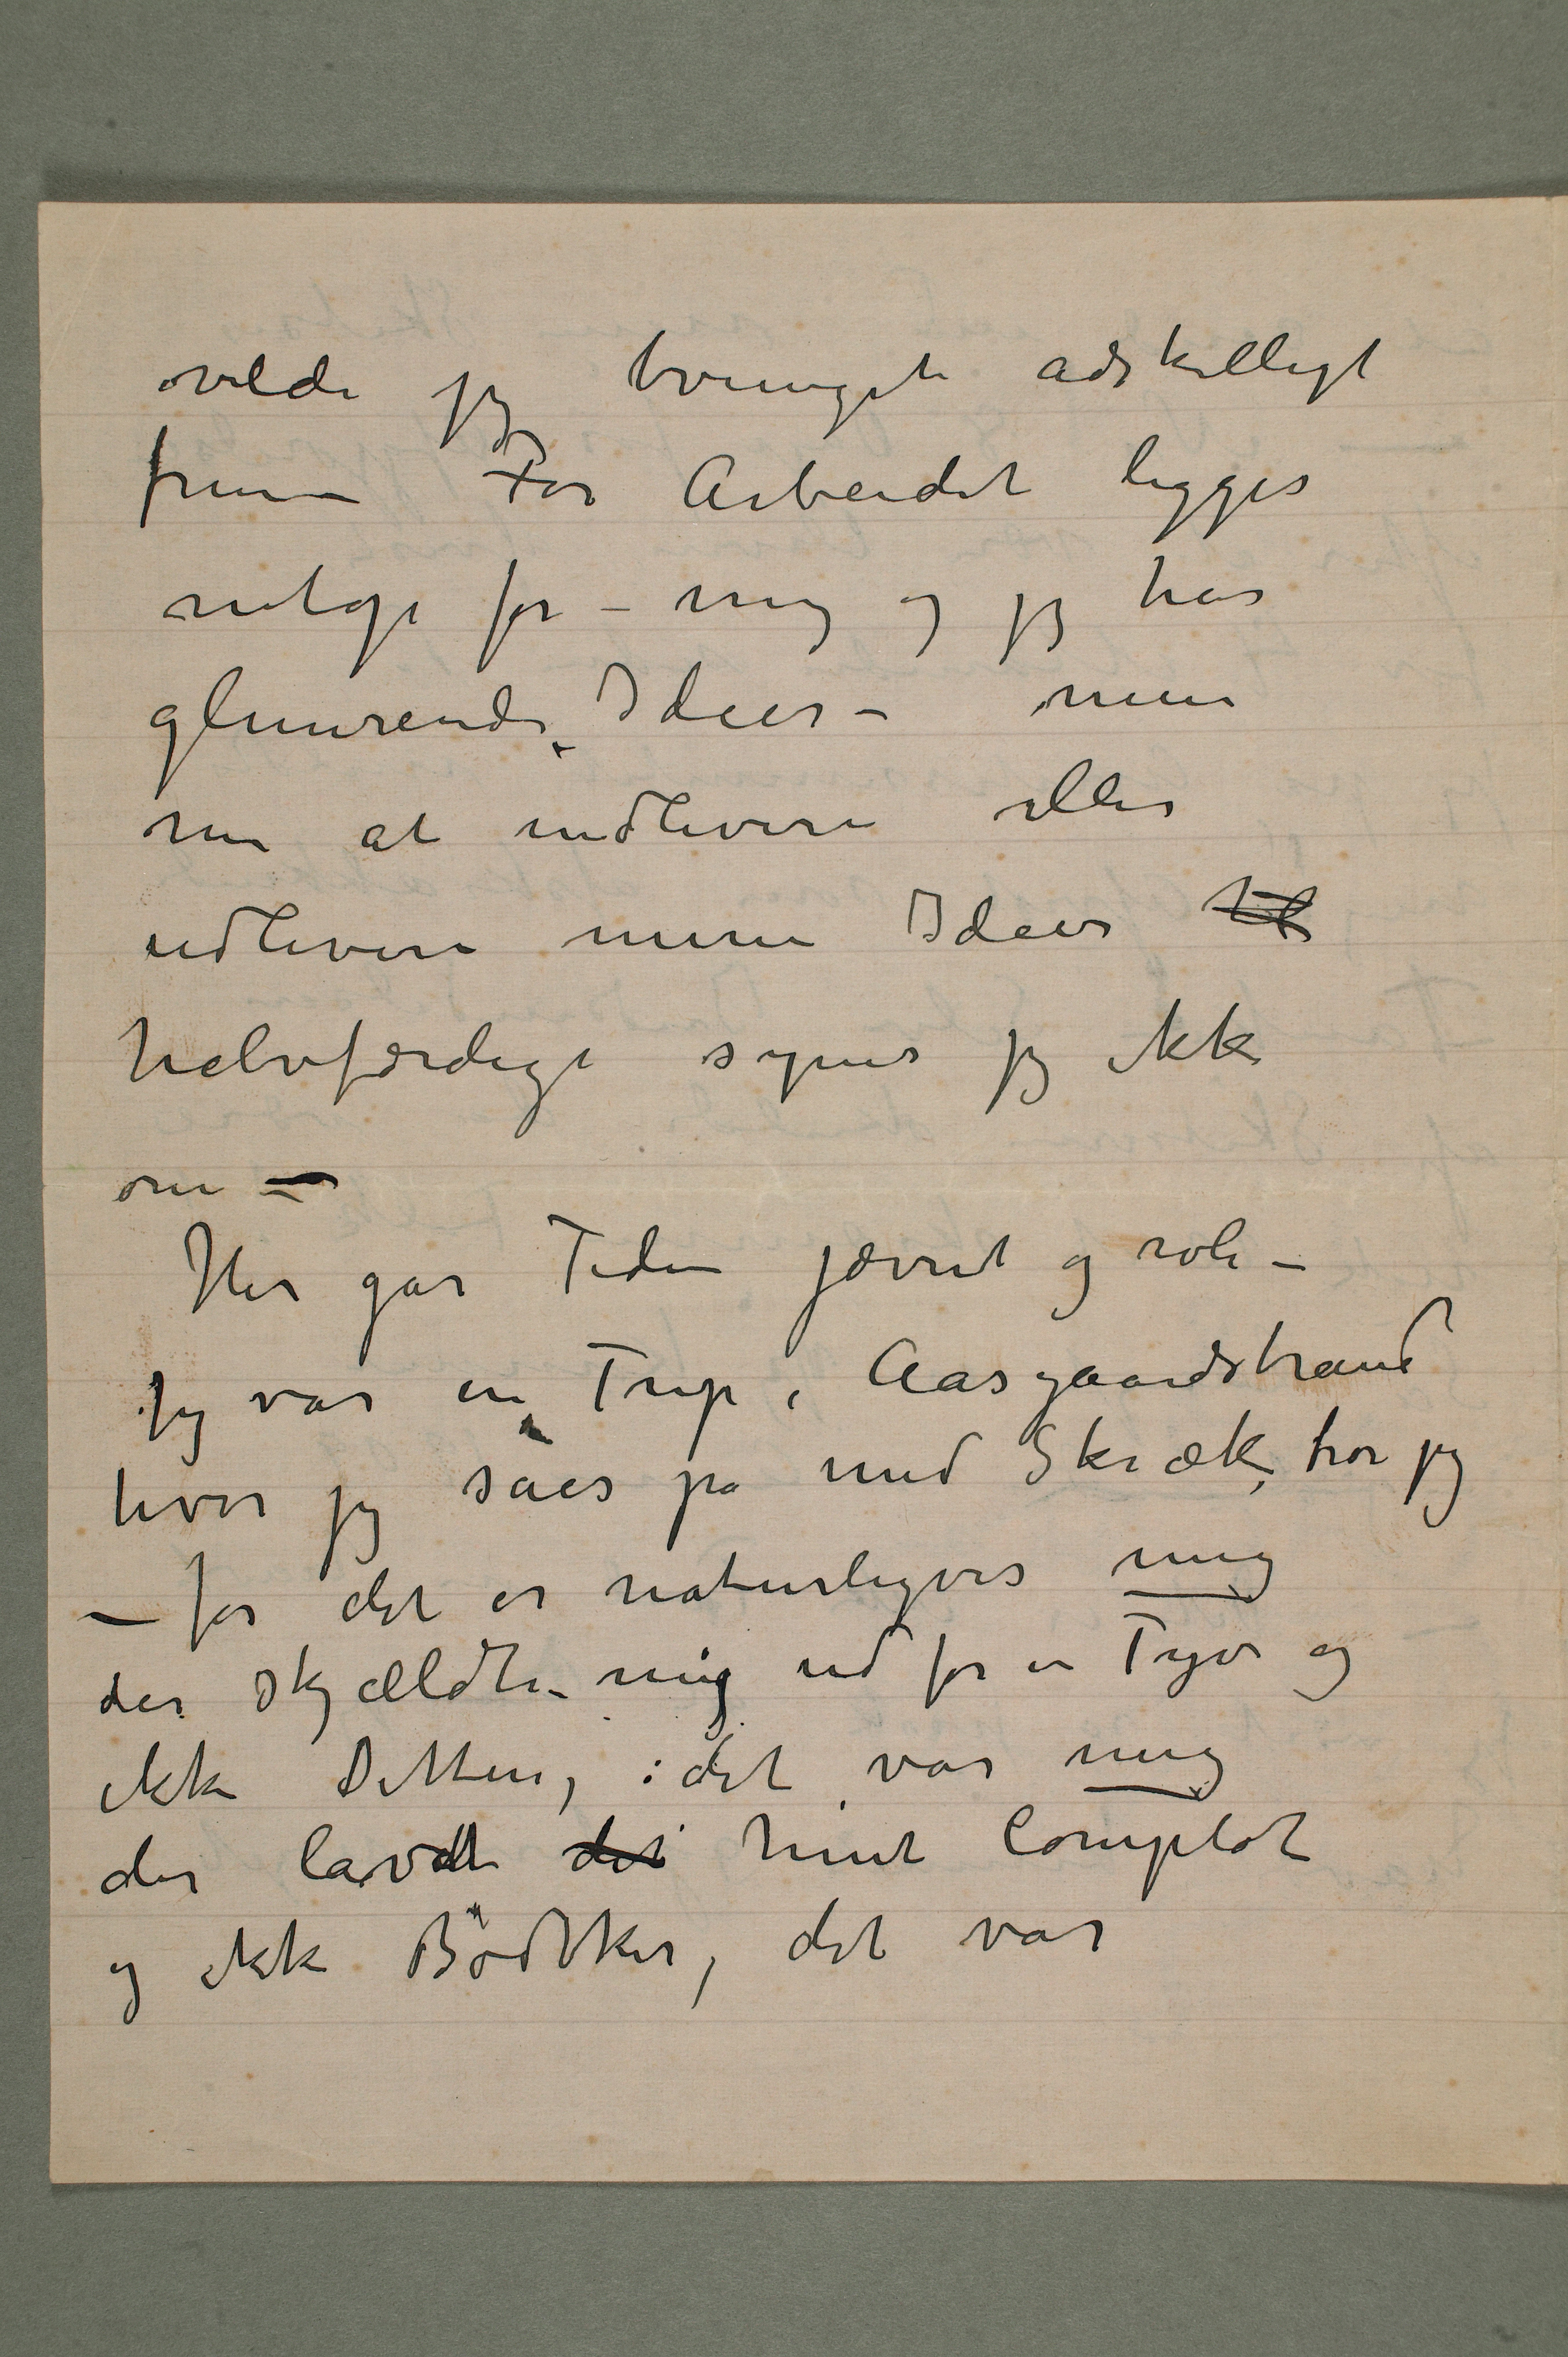 vilde jeg bringet adskilligt
frem For Arbeidet ligger
netop for – mig og jeg har
glimrende Ideer – men
nu at indlevere eller
udlevere mine Ideer til
halvfærdige synes jeg ikke
om –
Her går Tiden jævnt og roli –
Jeg var en Trip i Aasgaardstrand
hvor jeg såes på med Skræk, tror jeg
– for det er naturligvis mig
der skjældte mig ud for en Tyv og
ikke Ditten, idet var mig
der lavdte det hint Complot
og ikke Bødtker, det var